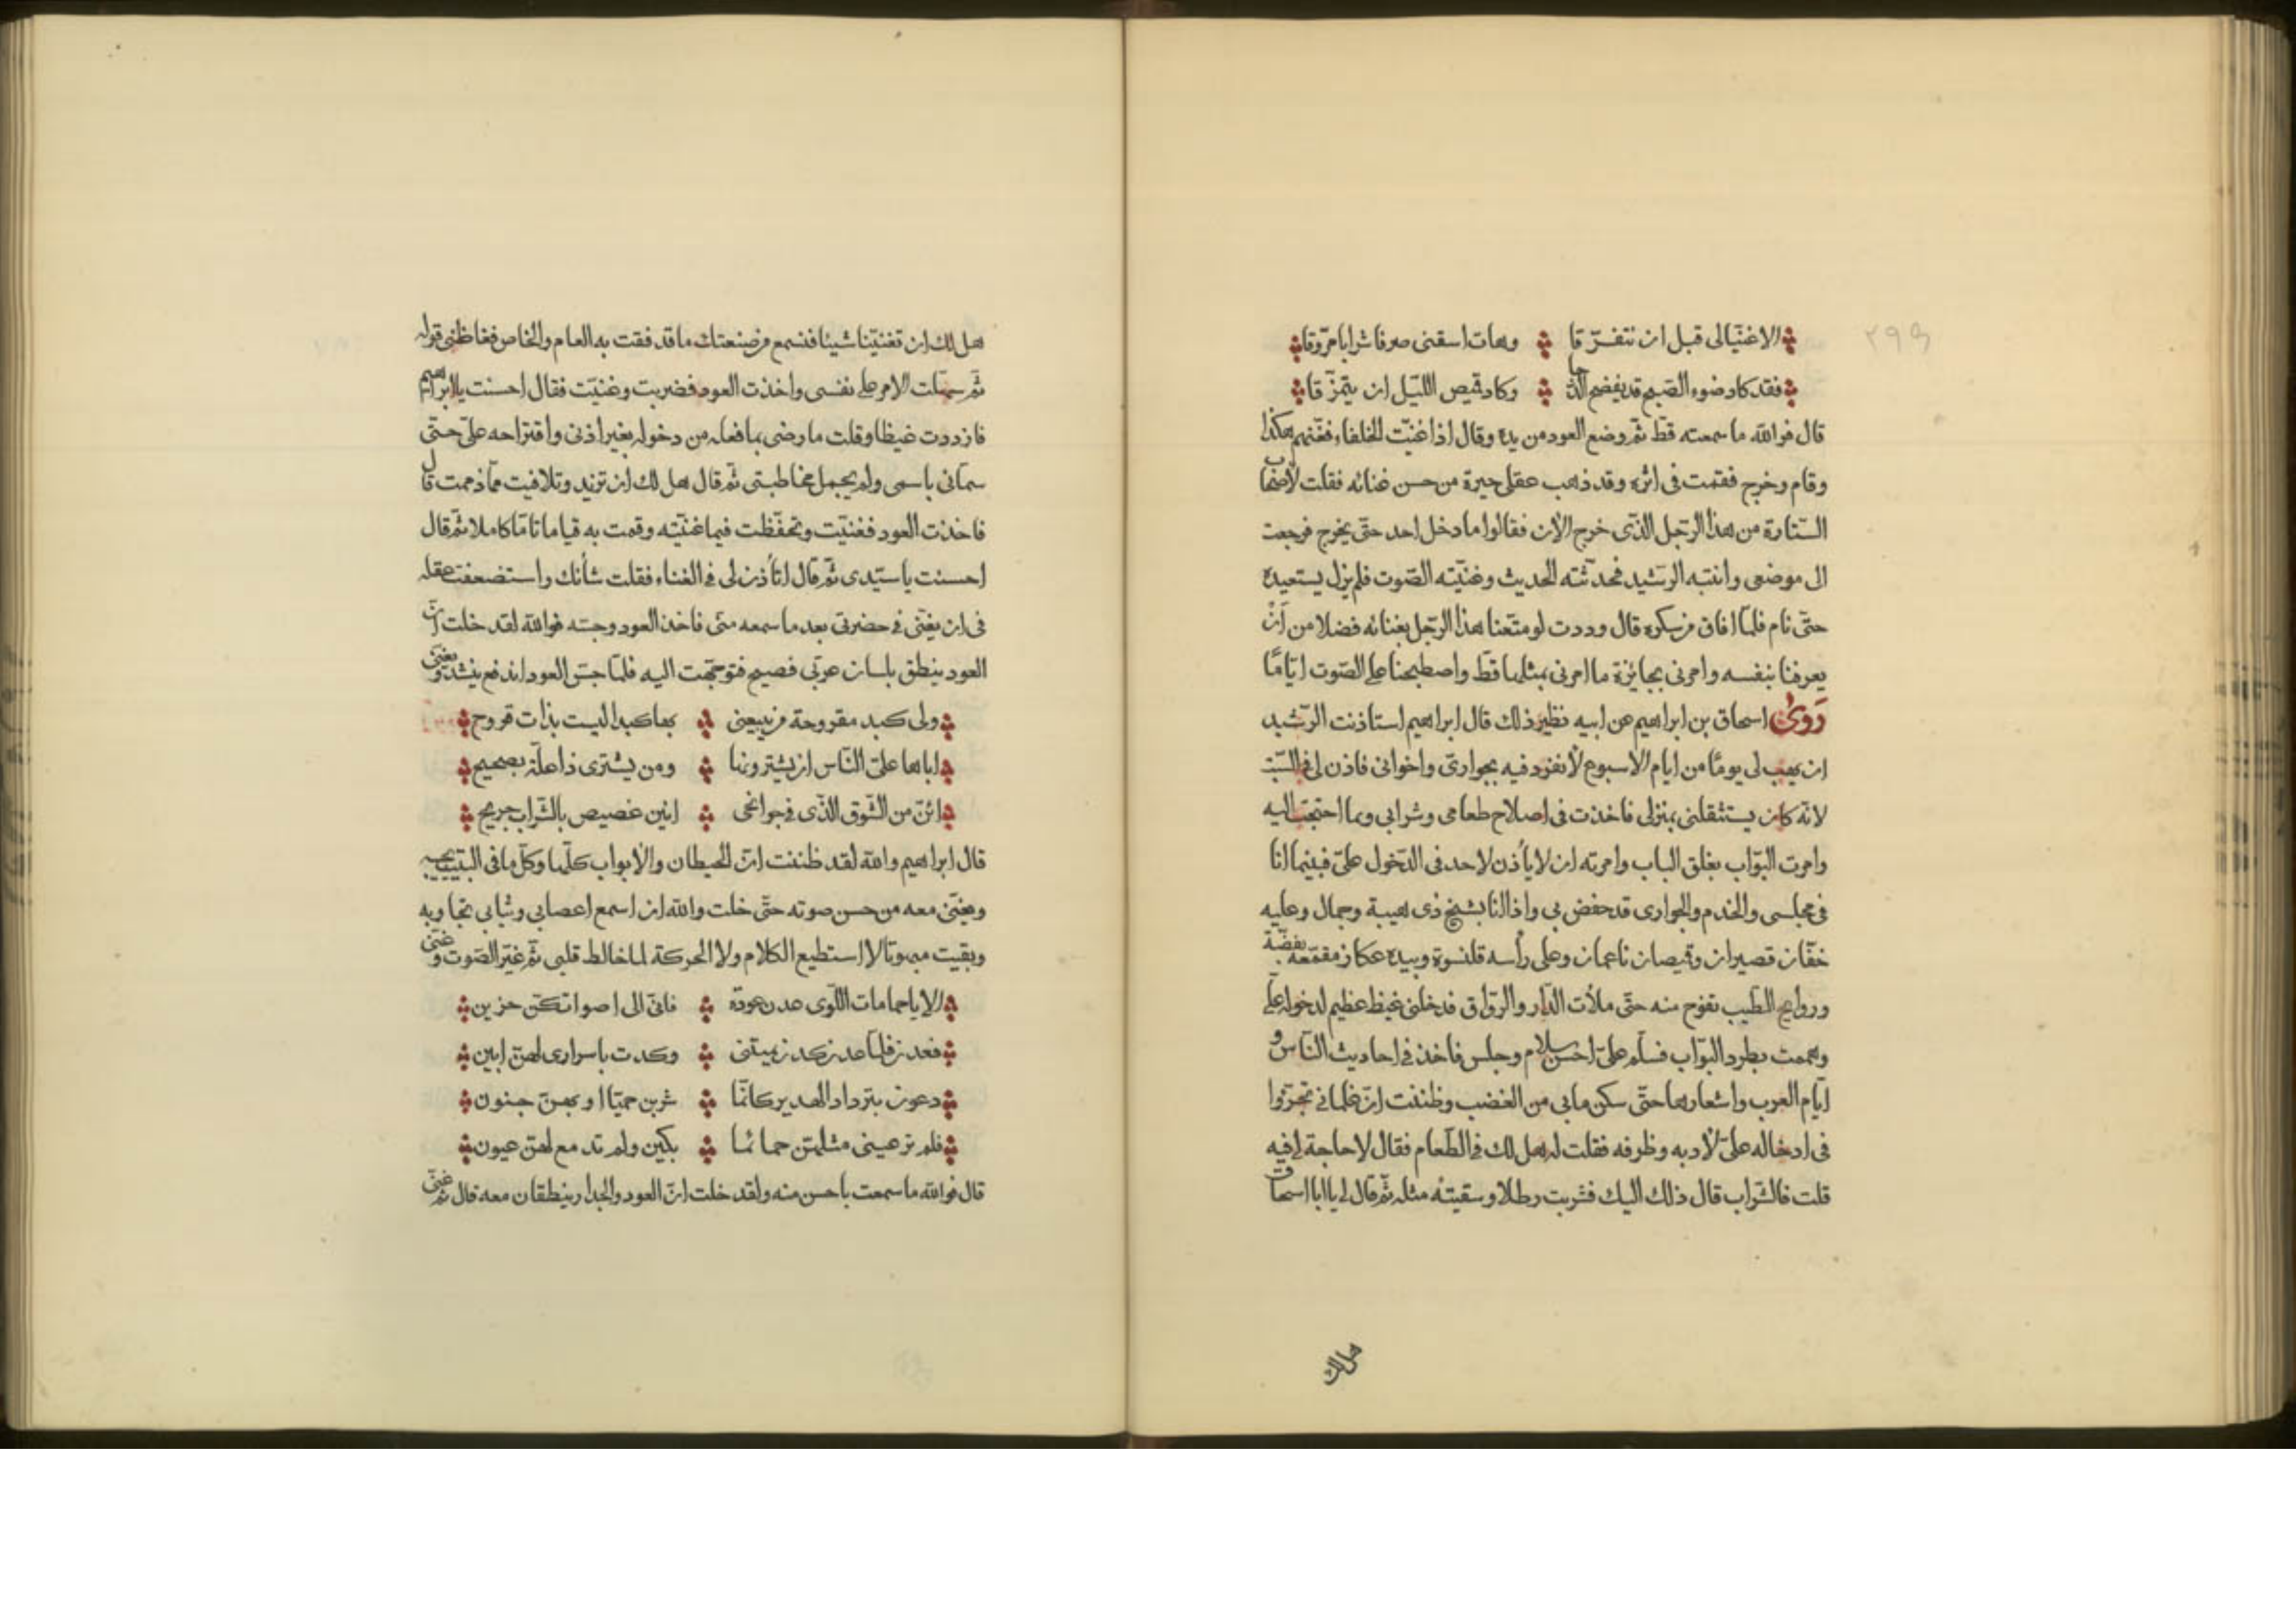 ٢٩٩
الا غنّيا لى قبل ان نتفرّقا وهات اسقنى صرفا شرابا مروّقا
فقد كاد ضوء الصّبح قد يفضح الدّجا وكاد قميص اللّيل ان يتمزّقا
قال فوالله ما سمعته قطّ ثمّ وضع العود من يده وقال اذا غنّيت الخلفاء فغنّهم هكذا
وقام وخرج فقمت فى اثره وقد ذهب عقلى حيرة من حسن غنائه فقلت لأصحاب
السّتارة من هذا الرّجل الّذى خرج الآن فقالوا ما دخل احد حتّى يخرج فرجعت
الى موضعى وانتبه الرّشيد فحدّثته الحديث وغنّيته الصّوت فلم يزل يستعيده
حتّى نام فلمّا افاق من سكره قال وددت لو متّعنا هذا الرّجل بغنائه فضلا من أنْ
يعرفنا بنفسه وامرنى بجائزة ما امرنى بمثلها قطّ واصطبحنا على الصّوت ايّامًا
رَوىٰ اسحاق بن ابراهيم عن ابيه نظير ذلك قال ابراهيم استاذنت الرّشيد
ان يهب لى يومًا من ايام الاسبوع لأنفرد فيه بجوارىّ واخوانى فاذن لى فى السّبت
لانّه كان يستثقلنى بمنزلى فاخذت فى اصلاح طعامى وشرابى وما احتجت اليه
وامرت البوّاب بغلق الباب وامرته ان لا يأذن لاحد فى الدّخول علىّ فبينما انا
فى مجلسى والخدم والجوارى قد حفض بى واذا انا بشيخ ذى هيبة وجمال وعليه
خفّان قصيران وقميصان ناعمان وعلى رأسه قلنسوة وبيده عكاز مقمّعة بفضّة
وروايح الطّيب تفوح منه حتّى ملأت الدّار والرّواق فدخلنى غيظ عظيم لدخوله علىّ
وهممت بطرد البوّاب فسلّم علىّ احسن سلام وجلس فاخذ فى احاديث النّاس و
ايّام العرب واشعارها حتّى سكن ما بى من الغضب وظننت انّ غلمانى تجرّؤا
فى ادخاله علىّ لأدبه وظرفه فقلت له هل لك فى الطّعام فقال لا حاجة لى فيه
قلت فالشّراب قال ذلك اليك فشربت رطلا وسقيته مثله ثمّ قال لى يا ابا اسحاق
هل لك
هل لك ان تغنّينا شيئا فنسمع من صنعتك ما قد فقت به العام والخاص فغاظنى قوله
ثمّ سهّلت الامر على نفسى واخذت العود فضربت وغنيّت فقال احسنت يا ابراهيم
فازددت غيظا وقلت ما رضى بما فعله من دخوله بغير اذنى واقتراحه علىّ حتّى
سمّانى باسمى ولم يجمل مخاطبتى ثمّ قال هل لك ان تزيد وتلافيت فتذممت قال
فاخذت العود فغنيّت وتحفّظت فيما غنّيته وقمت به قياما تامّا كاملا ثمّ قال
احسنت يا سيّدى ثمّ قال اتأذن لى فى الغناء فقلت شأنك واستضعفت عقله
فى ان يغنّى فى حضرتى بعد ما سمعه منّى فاخذ العود وجسّه فوالله لقد خلت انّ
العود ينطق بلسان عربّى فصيح فتوجّهت اليه فلمّا جسّ العود اندفع ينشد ويغنّى
ولى كبد مقروحة من يبيعنى بها كبدا ليست بذات قروح
اباها علىّ النّاس ان يشترونها ومن يشترى ذا علّة بصحيح
ائنّ من الشّوق الّذى فى جوانحى انين غصيص بالشّراب جريح
قال ابراهيم والله لقد ظننت انّ الحيطان والابواب كلّها وكلّ ما فى البيت يجيبه
ويغنّى معه من حسن صوته حتّى خلت والله ان اسمع اعضابى وثيابى تجاوبه
وبقيت مبهوتا لا استطيع الكلام ولا الحركة لما خالط قلبى ثمّ غيّر الصّوت وغنّى
الا يا حمامات اللّوى عدن عودة فانّى الى اصواتكنّ حزين
فعدن فلمّا عدن كدن يمتننى وكدت باسرارى لهنّ ابين
دعون بترداد الهدير كانّما شربن حميّا او بهنّ جنون
فلم تر عينى مثلهنّ حمائما بكين ولم تدمع لهنّ عيون
قال فوالله ما سمعت باحسن منه ولقد خلت انّ العود والجدار ينطقان معه قال ثمّ غنّى